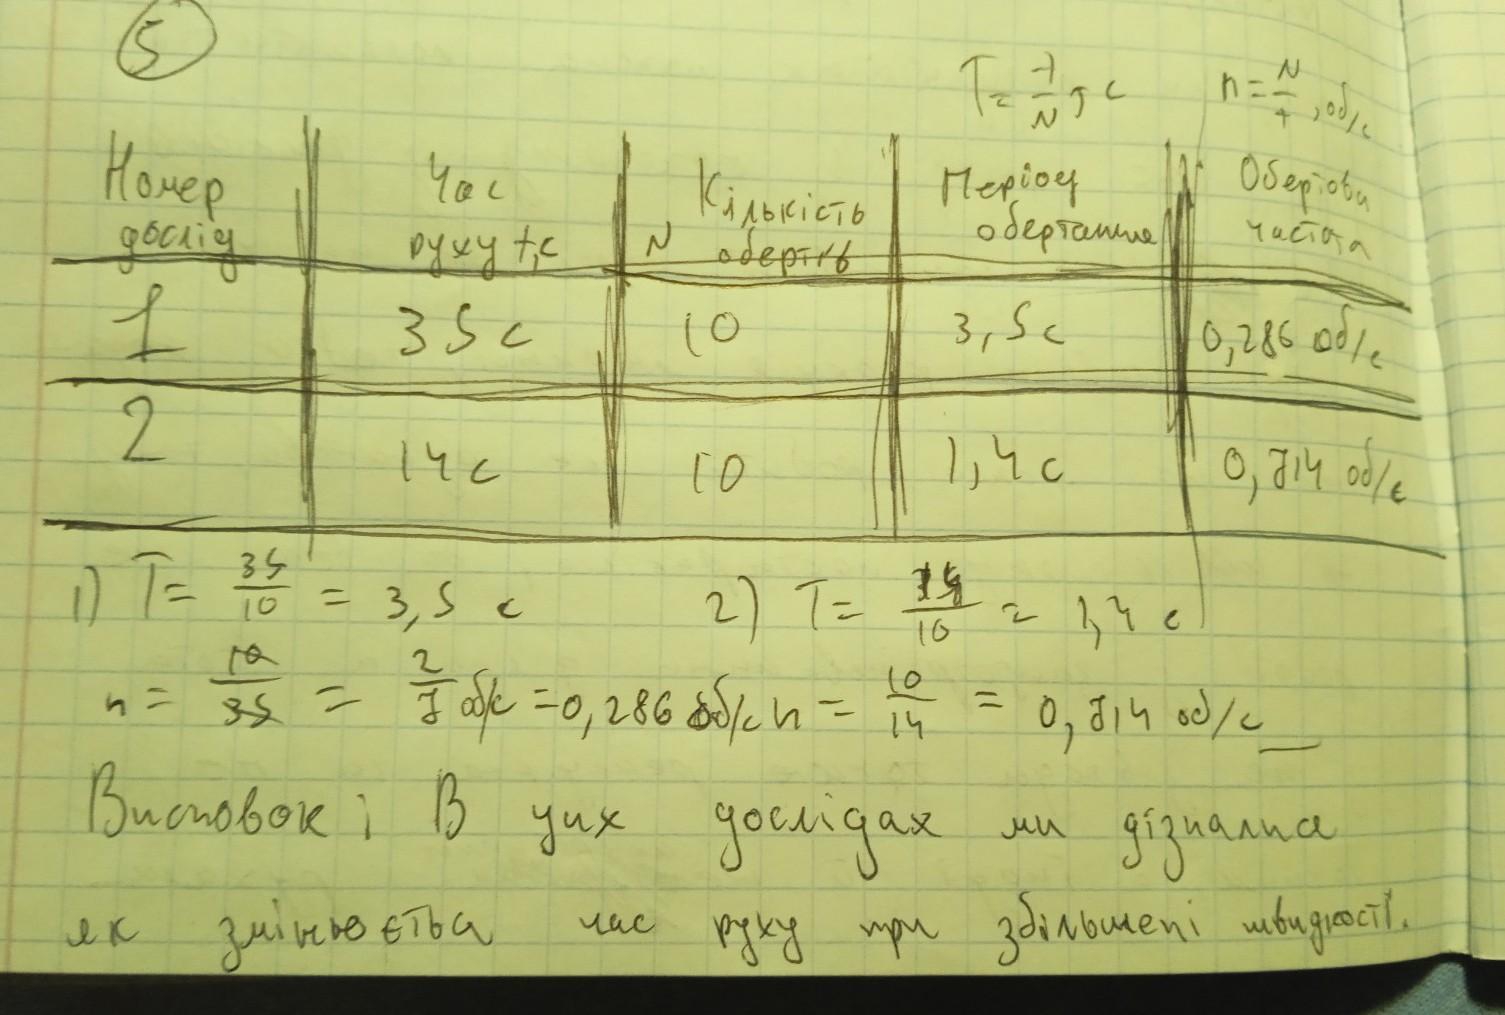 5
T = t/N, с
n = N/t, об/с
Номер дослід | Час руху t,с | N Кількість обертів | Період обертання | Обертова частота
1 | 35 с | 10 | 3,5 с | 0,286 об/с
2 | 14 с | 10 | 1,4 с | 0,714 об/с
1) T = 35/10 = 3,5 с 2) T = 14/10 = 1,4 с
n = 10/35 = 2/7 об/с = 0,286 об/с n = 10/14 = 0,714 об/с
Висновок: В цих дослідах ми дізналися
як змінюється час руху при збільшені швидкості.